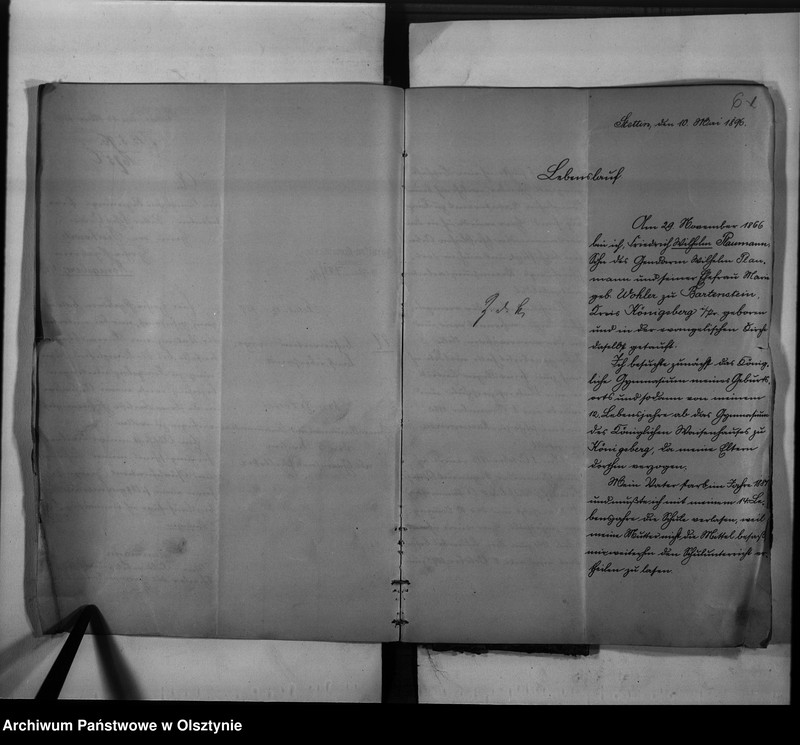 61
Stettin, den 10. Mai 1896.
Lebenslauf.
Am 29 November 1866
bin ich, Friedrich Wilhelm Plaumann
Sohn des Gendarm Wilhelm Plau-
mann und seiner Ehefrau Marie
geb. Wohler zu Bartenstein,
Kreis Königsberg i/Pr. geboren
und in der evangelischen Kirche
daselbst getauft.
Ich besuchte zunächst das König-
liche Gymnasium meines Geburts-
orts und sodann von meinem
12. Lebensjahre ab das Gymnasium
des Königlichen Waisenhauses zu
Königsberg, da meine Eltern
dorthin verzogen.
Mein Vater starb im Jahre
und mußte ich mit meinem 14. Le-
bensjahre die Schule verlassen, weil
meine Mutter nicht die Mittel besaß
mir weiterhin den Schulunterricht er-
theilen zu lassen.
Z. d. A.
Archiwum Państwowe w Olsztynie